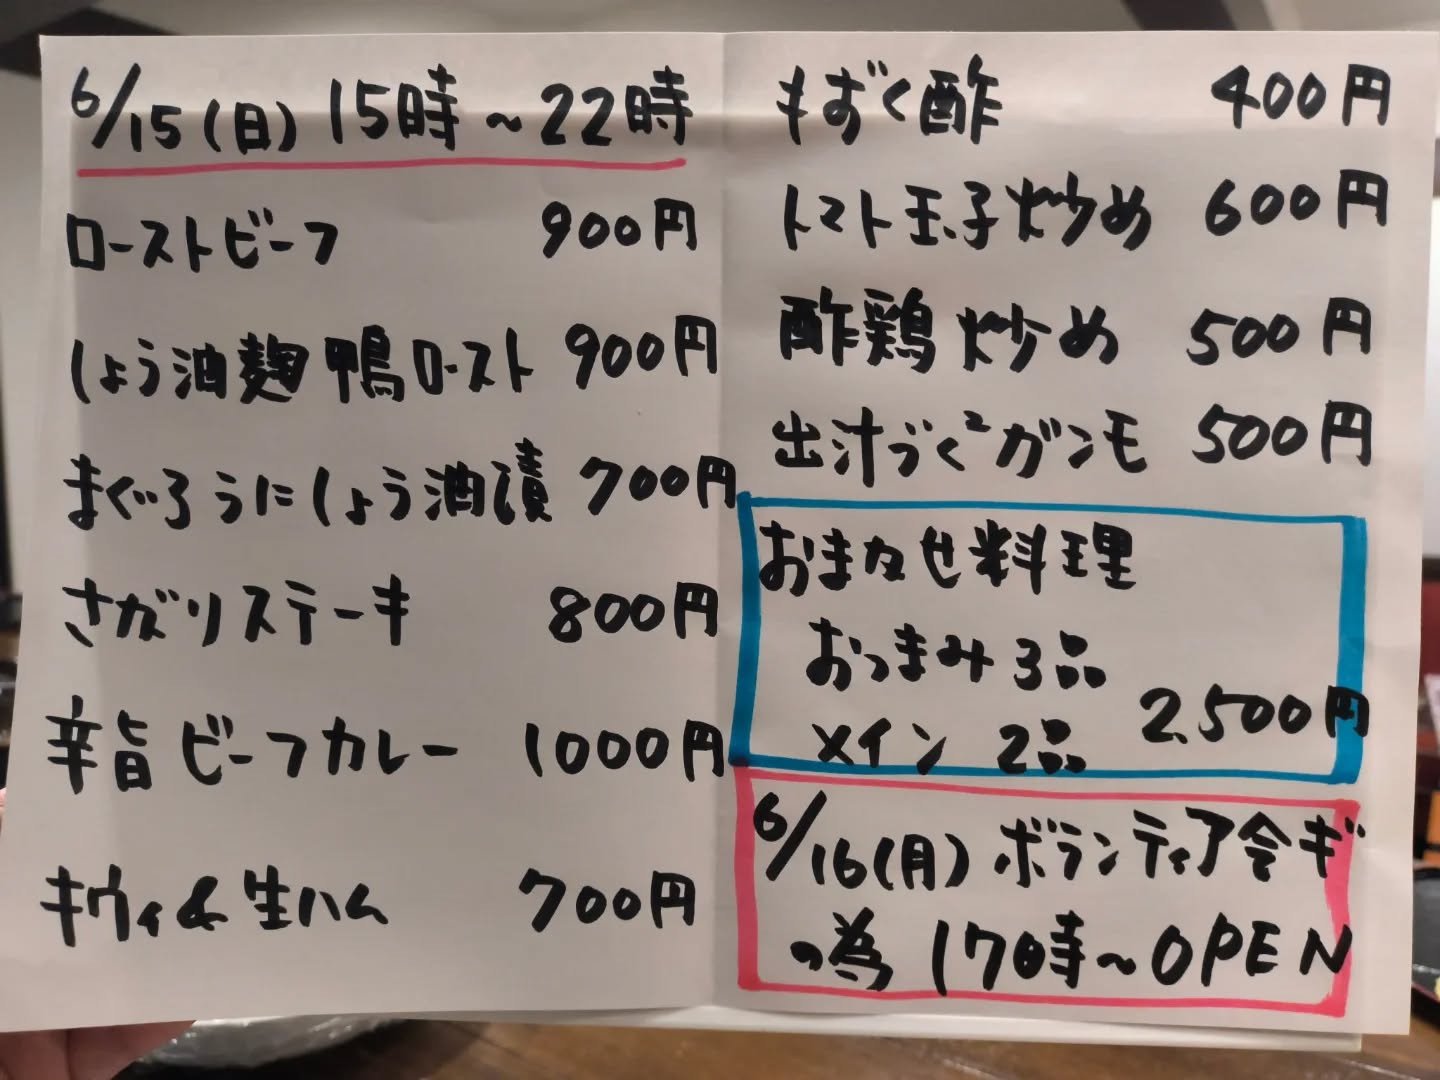 6/15(日) 15時～22時
ローストビーフ 900円
しょう油麹 鴨ロースト 900円
まぐろうにしょう油漬 700円
さがりステーキ 800円
辛旨 ビーフカレー 1000円
キウィ&生ハム 700円
もずく酢 400円
トマト玉子炒め 600円
酢鶏炒め 500円
出汁づくガンモ 500円
おまかせ料理
おつまみ3品
メイン 2品 2,500円
6/16(月) ボランティア会ギ
の為 17時～OPEN